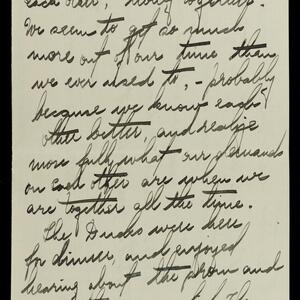 each other, really together.
We seem to get so much
more out of our time than
we ever used to, - probably
because we know each
other better, and realize
more fully what our demands
on each other are when we
are together all the time.
The Dudes were here
for dinner, and enjoyed
hearing about the prom and